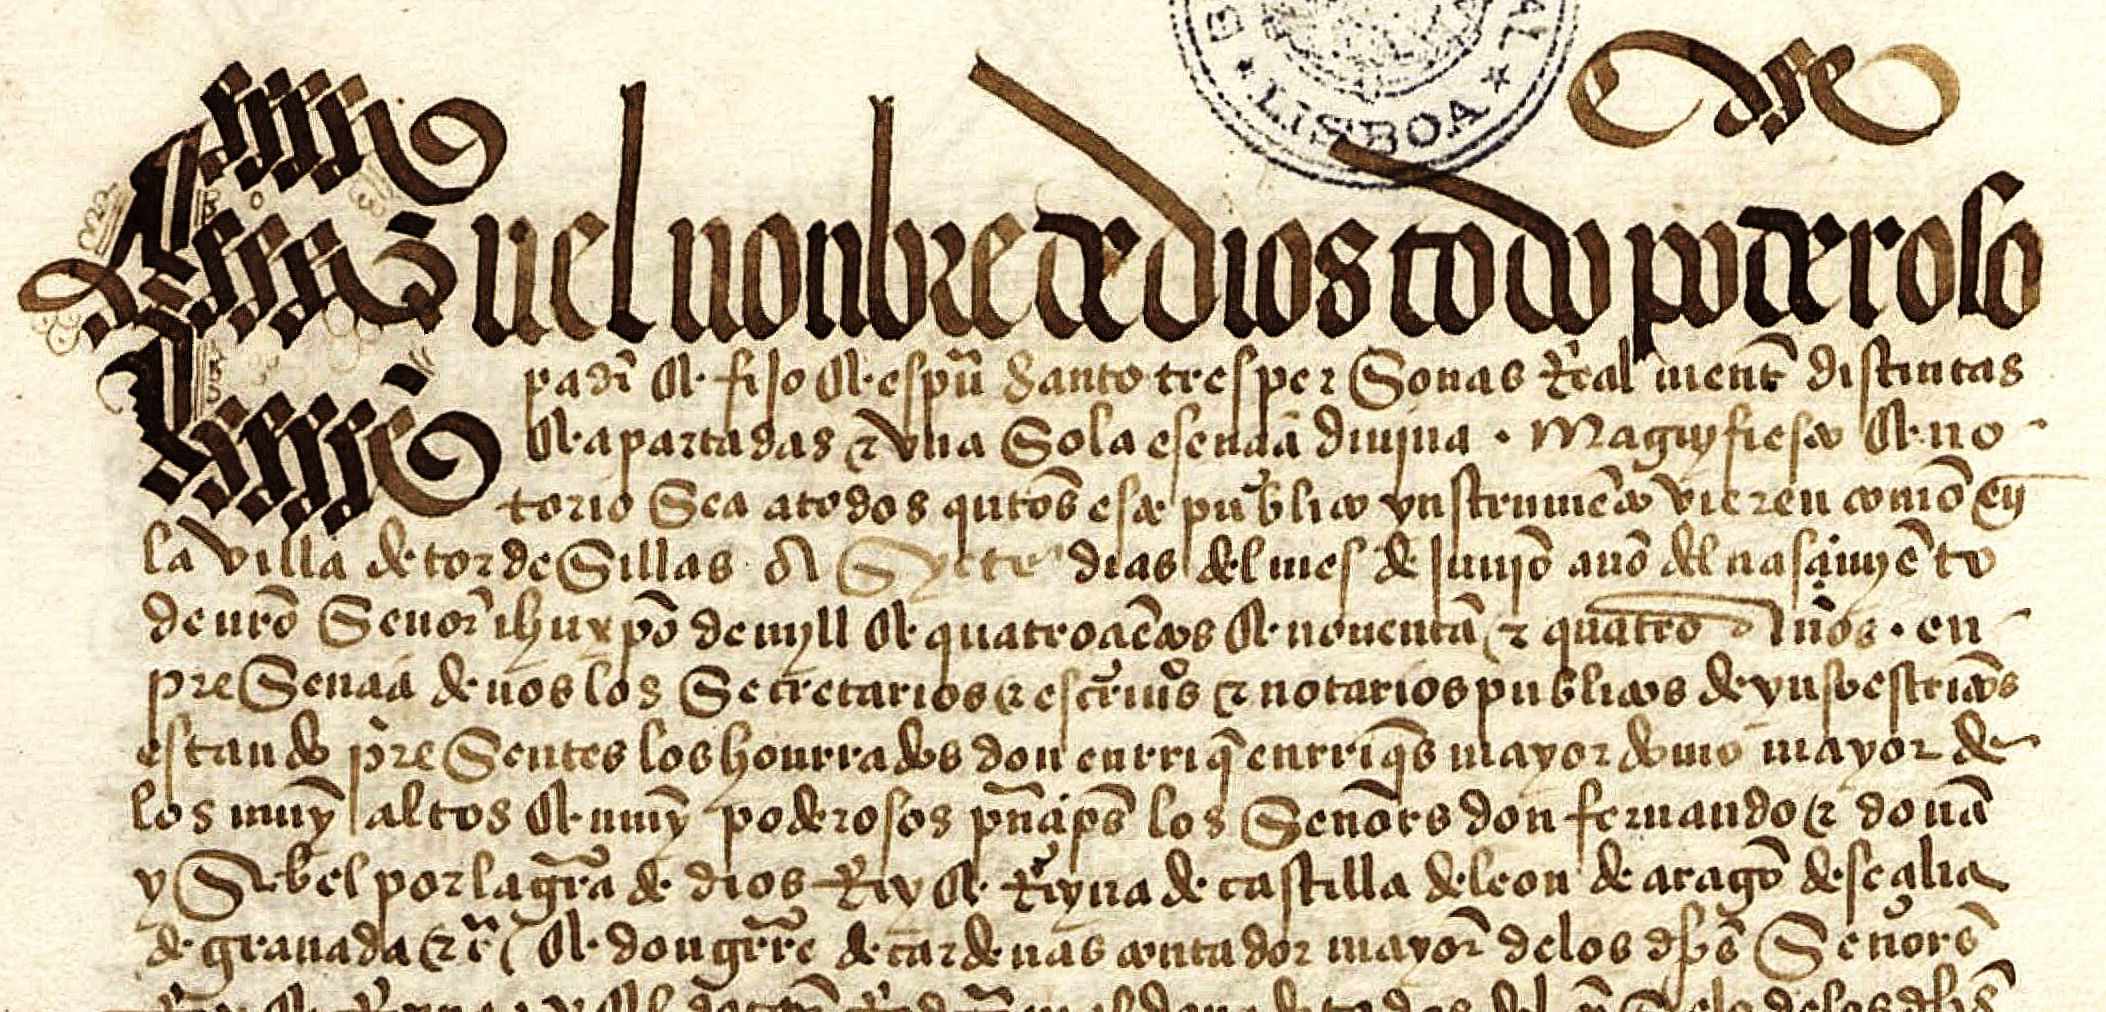 LISBOA
En el nonbre de dios todo poderoso
padr̃ & fijo & esp̃u santo tres personas Real ment̃ distintas
& apartadas & vna sola esençia diujna . Magnyfiesto & no
torio sea a todos qntõs este publico ynstrumẽto vieren como en
la villa de tordesillas A syete dias del mes de junjo año del nasçimyẽto
de nr̃o señor ihũ xp̃o de myll & quatroçiẽtos & nouenta & quatro años . en
presençia de nos los secretarios & escriuãos & notarios publicos de yuso escriptos
estando presentes los honrrados don enrriq̃ enrriq̃s mayordomo mayor de
los muy altos & muy poderosos prĩçipes los señores don fernando & doña
ysabel por la gr̃a de dios Rey & Reyna de castilla de leon de aragõ de seçilia
de granada &c̃ & don gutr̃re de cardenas contador mayor de los dh̃os señores